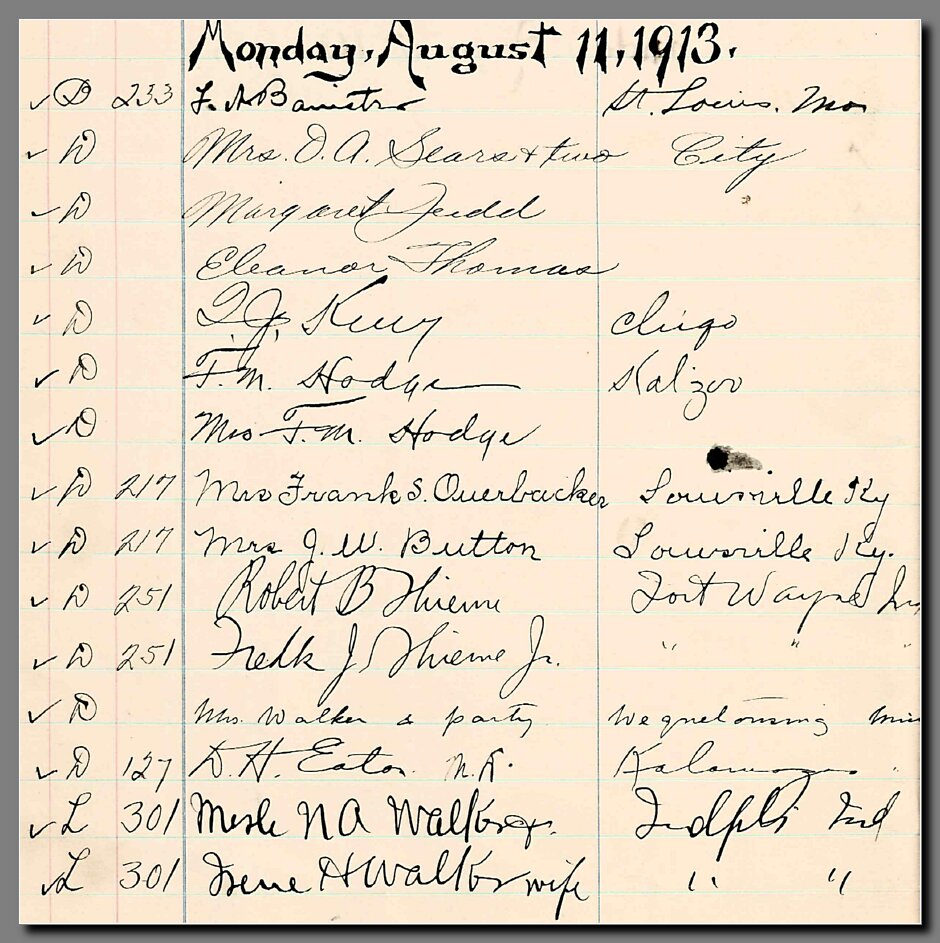 Monday, August 11, 1913.
✓ D 233 F. A. Banister St. Louis. Mo
✓ D Mrs. O. A. Sears & two City
✓ D Margaret Judd
✓ D Eleanor Thomas
✓ D J.
✓ D F. M. Hodge Kalzoo
✓ D Mrs F. M. Hodge
✓ D 217 Mrs Frank S. Ouerbacker Louisville Ky
✓ D 217 Mrs J. W. Button Louisville Ky.
✓ D 251 Robert B Thieme Fort Wayne
✓ D 251 Fredk J Thieme Jr. " " "
✓ D Mrs. Walker & party Wequetonsing
✓ D 127 D. H. Eaton Kalamazoo
✓ L 301 Merle N A Walker Indpls Ind
✓ L 301 Irene H Walker wife " "